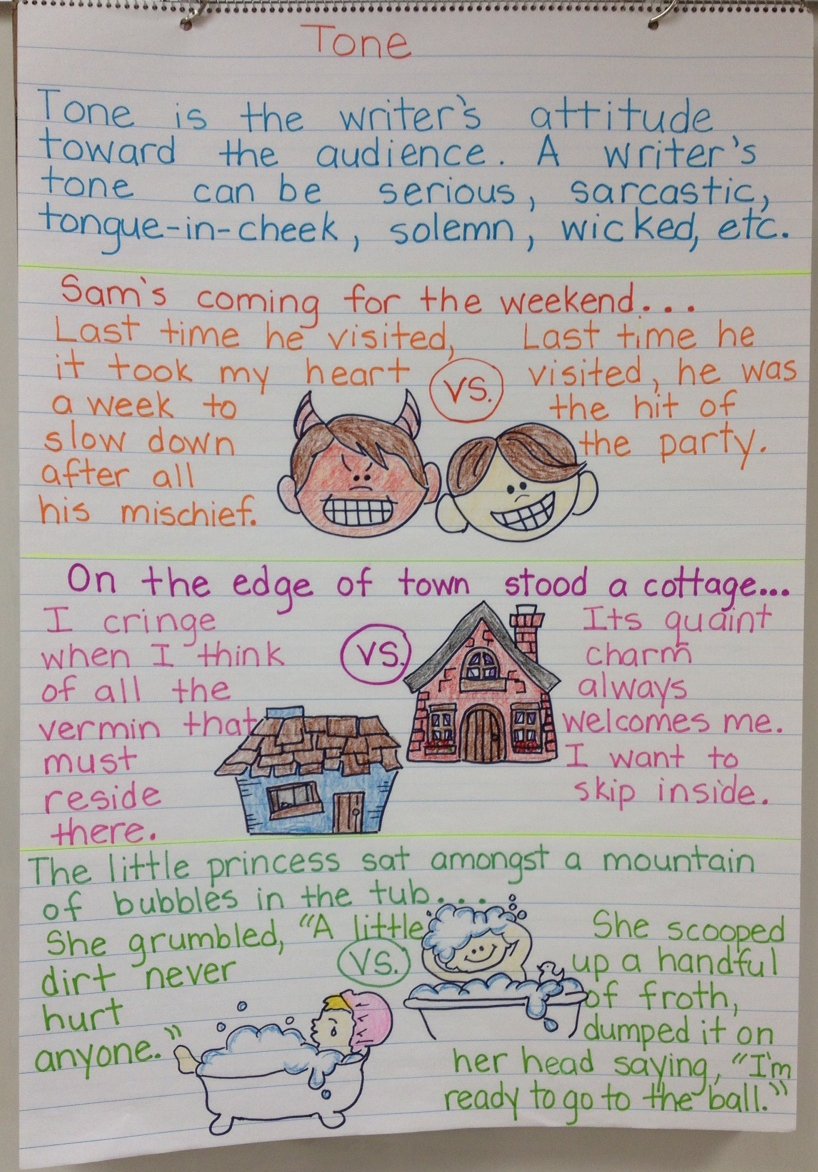 Tone
Tone is the writer's attitude
toward the audience. A writer's
tone can be serious, sarcastic,
tongue-in-cheek, solemn, wicked, etc.
Sam's coming for the weekend...
Last time he visited,
it took my heart
a week to
slow down
after all
his mischief.
vs.
Last time he
visited, he was
the hit of
the party.
On the edge of town stood a cottage...
I cringe
when I think
of all the
vermin that
must
reside
there.
vs.
Its quaint
charm
always
welcomes me.
I want to
skip inside.
The little princess sat amongst a mountain
of bubbles in the tub...
She grumbled, "A little
dirt never
hurt
anyone."
vs.
She scooped
up a handful
of froth,
dumped it on
her head saying, "I'm
ready to go to the ball."